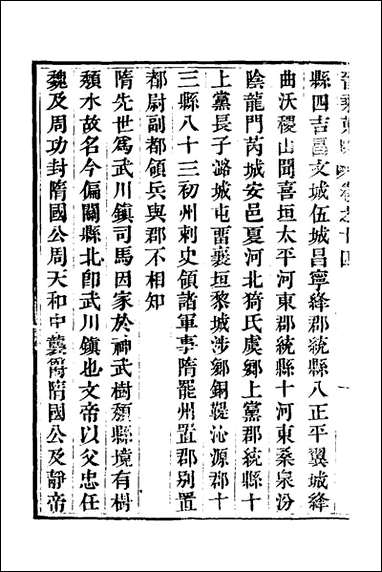 晉乘蒐略 卷之十四
縣四吉昌文城伍城昌寧絳郡統縣八正平翼城絳
曲沃稷山聞喜垣太平河東郡統縣十河東桑泉汾
陰龍門芮城安邑夏河北猗氏虞鄉上黨郡統縣十
上黨長子潞城屯留襄垣黎城涉鄉銅鞮沁源郡十
三縣八十三初州刺史領諸軍事隋罷州置郡別置
都尉副都領兵與郡不相知
隋先世爲武川鎮司馬因家於神武樹頹縣境有樹
頹水故名今偏關縣北卽武川鎮也文帝以父忠任
魏及周功封隋國公周天和中襲爵隋國公及靜帝